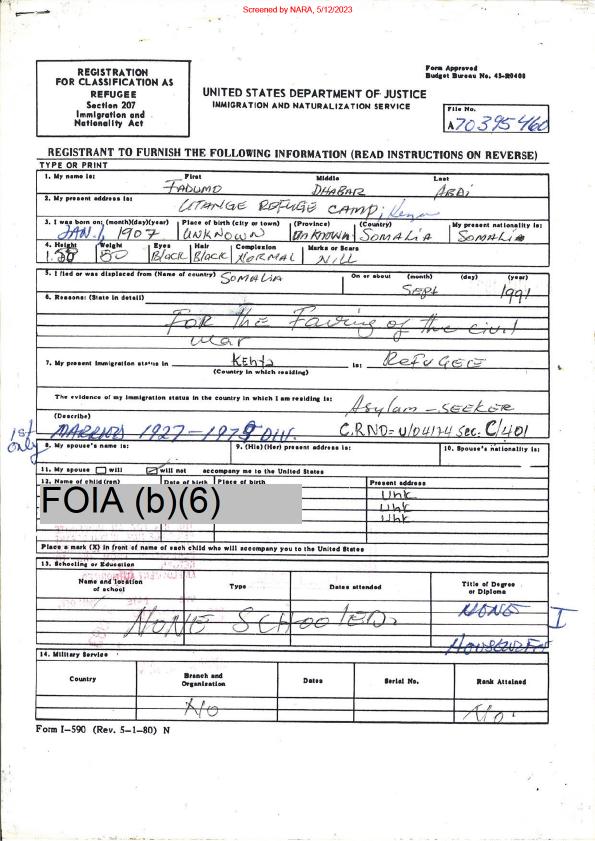 Screened by NARA, 5/12/2023
Form Approved
Budget Bureau No. 43-R0408
REGISTRATION
FOR CLASSIFICATION AS
REFUGEE
Section 207
Immigration and
Nationality Act
UNITED STATES DEPARTMENT OF JUSTICE
IMMIGRATION AND NATURALIZATION SERVICE
File No.
A70395460
REGISTRANT TO FURNISH THE FOLLOWING INFORMATION (READ INSTRUCTIONS ON REVERSE)
TYPE OR PRINT
1. My name is: First Middle Last
FADUMO DHABAR ABDI
2. My present address is: UTANGE REFUGE CAMP; Kenya
3. I was born on: (month)(day)(year) Place of birth (city or town) (Province) (Country) My present nationality is:
JAN. 1, 1907 UNKNOWN UNKNOWN SOMALIA SOMALIA
4. Height Weight Eyes Hair Complexion Marks or Scars
50 Black Black NORMAL NILL
5. I fled or was displaced from (Name of country) SOMALIA On or about (month) (day) (year)
Sept 1991
6. Reasons: (State in detail)
FOR the Fairing of the civil
war
7. My present immigration status in KENYA is: REFUGEE
(Country in which residing)
The evidence of my immigration status in the country in which I am residing is: Asylam - SEEKER
(Describe)
1st only MARRIED 1927-1979 DIV. C.RND= U/04174 Sec. C/401
8. My spouse's name is: 9. (His) (Her) present address is: 10. Spouse's nationality is:
11. My spouse will will not accompany me to the United States
12. Name of child (ren) Date of birth Place of birth Present address
FOIA (b)(6)
Unk
Unk
Unk
Place a mark (X) in front of name of each child who will accompany you to the United States
13. Schooling or Education
Name and location of school Type Dates attended Title of Degree or Diploma
NONE SCHOOLED. NONE I
HOUSEWIFE
14. Military Service
Country Branch and Organization Dates Serial No. Rank Attained
No No.
Form I-590 (Rev. 5-1-80) N